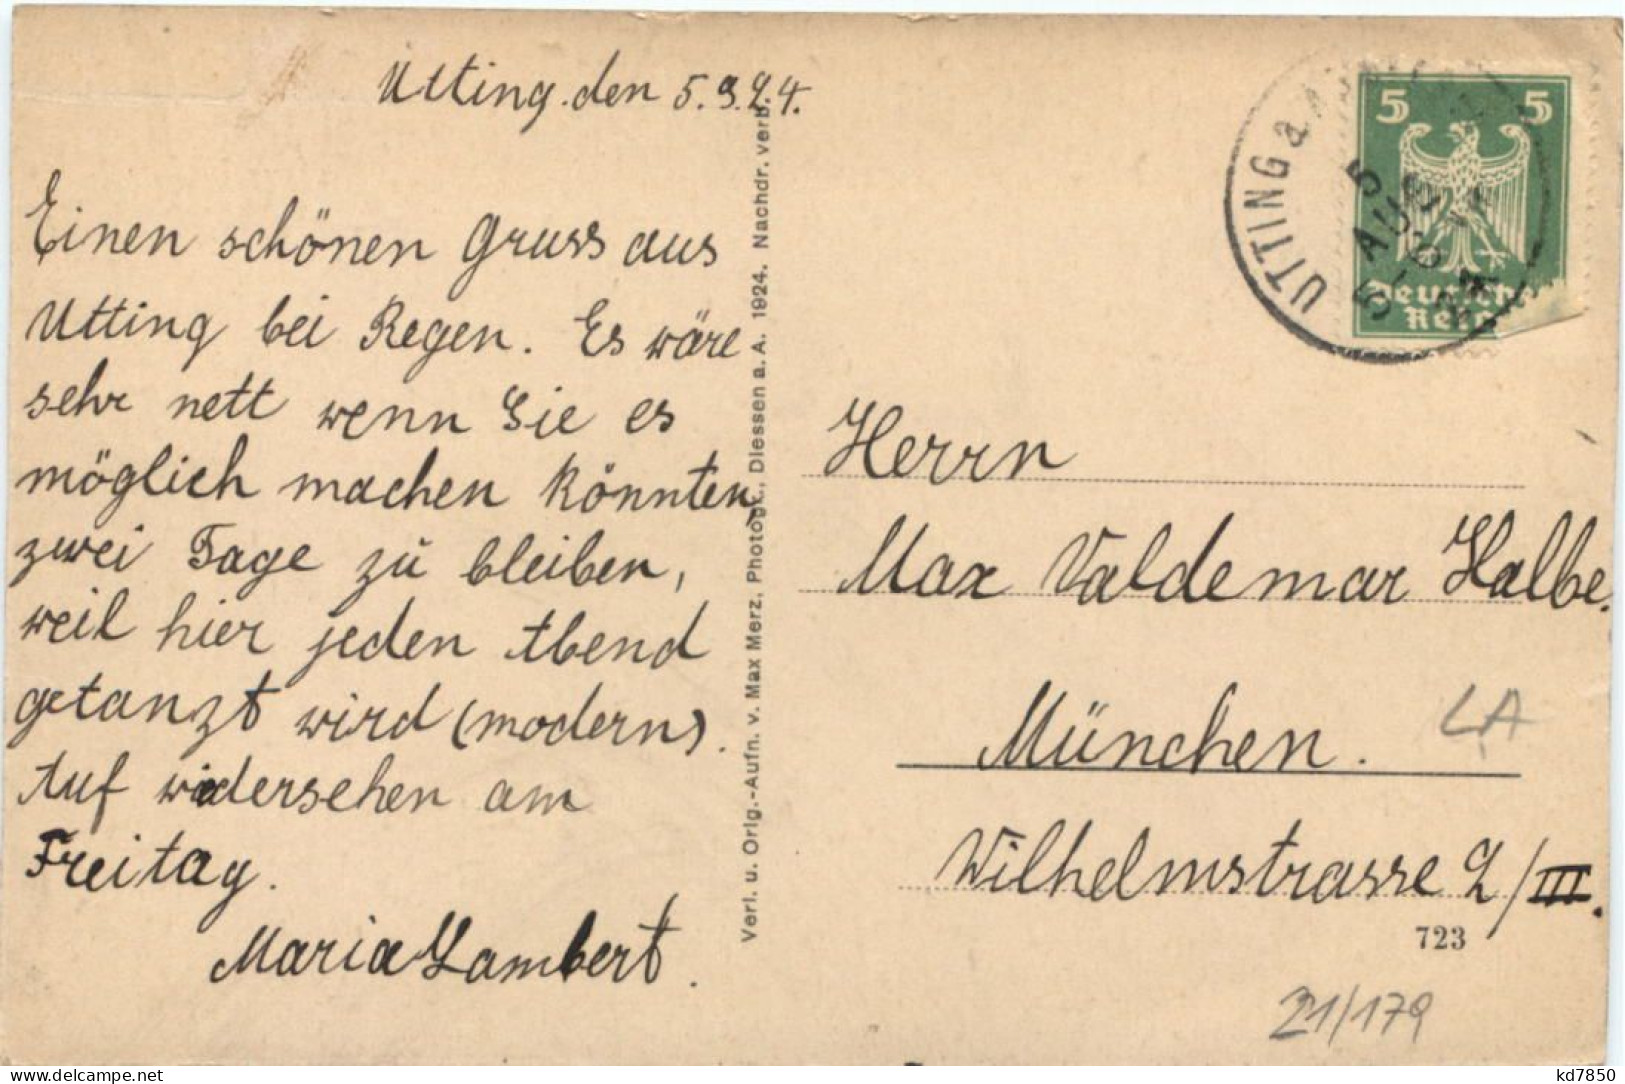 Utting den 5.9.24.
Einen schönen Gruss aus
Utting bei Regen. Es wäre
sehr nett wenn Sie es
möglich machen könnten,
zwei Tage zu bleiben,
weil hier jeden Abend
getanzt wird (modern).
Auf widersehen am
Freitag.
Maria Lambert.
Verl. u. Orig.-Aufn. v. Max Merz, Photogr., Diessen a. A. 1924. Nachdr. verb.
UTTING a.
5 AUG
5
5
Deutsches
Reich
Herrn
Max Valdemar Halbe.
München.
LA
Wilhelmstrasse 2/III.
723
21/179
delcampe.net
kd7850